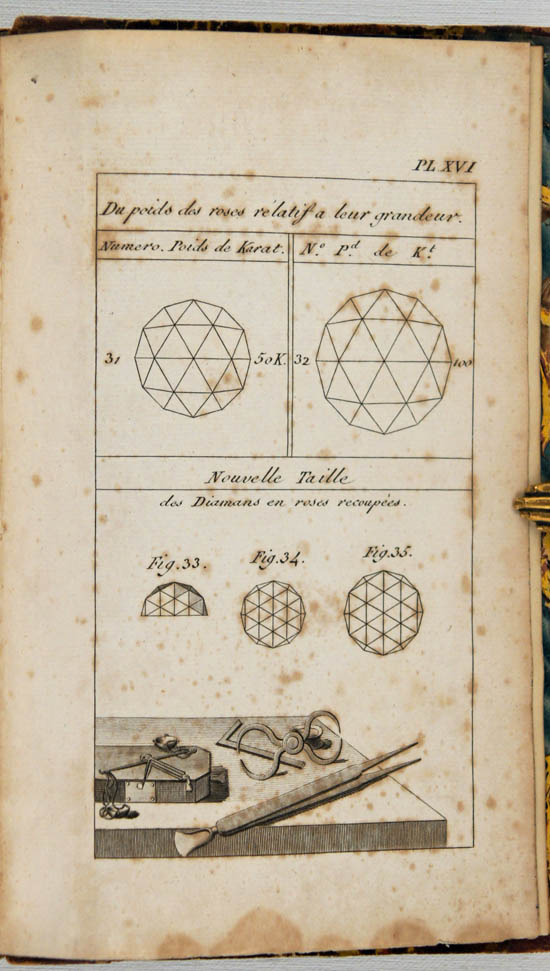 PL XVI
Du poids des roses rélatif a leur grandeur.
Numero. Poids de Karat.
N.º P.d de K.t
31
50 K.
32
100
Nouvelle Taille
des Diamans en roses recoupées.
Fig. 33.
Fig. 34.
Fig. 35.